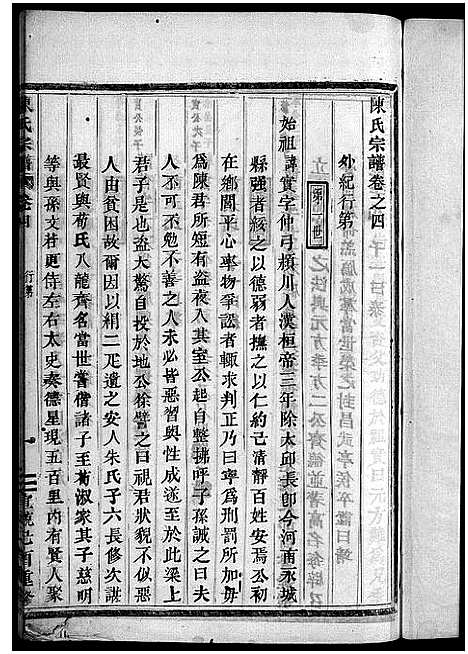 陳氏宗譜卷之四
外紀行第
第一世
始祖諱寔字仲弓潁川人漢桓帝三年除太邱長卽今河南永城
縣強者綏之以德弱者撫之以仁約己清靜百姓安焉公初
在鄉閭平心率物爭訟者輒求判正乃曰寧爲刑罰所加毋
爲陳君所短有盜夜入其室公起自整拂呼子孫誡之曰夫
人不可不勉不善之人未必皆惡習與性成遂至於此梁上
君子是也盜大驚自投於地公徐譬之曰視君狀貌不似惡
人由貧困故爾因以絹二疋遺之安人朱氏子六長修次諶
最賢與荀氏八龍齊名當世嘗偕諸子至荀淑家其子慈明
等與孫文若更侍左右太史奏德星現五百里內有賢人聚
陳氏宗譜
卷四
行第
一